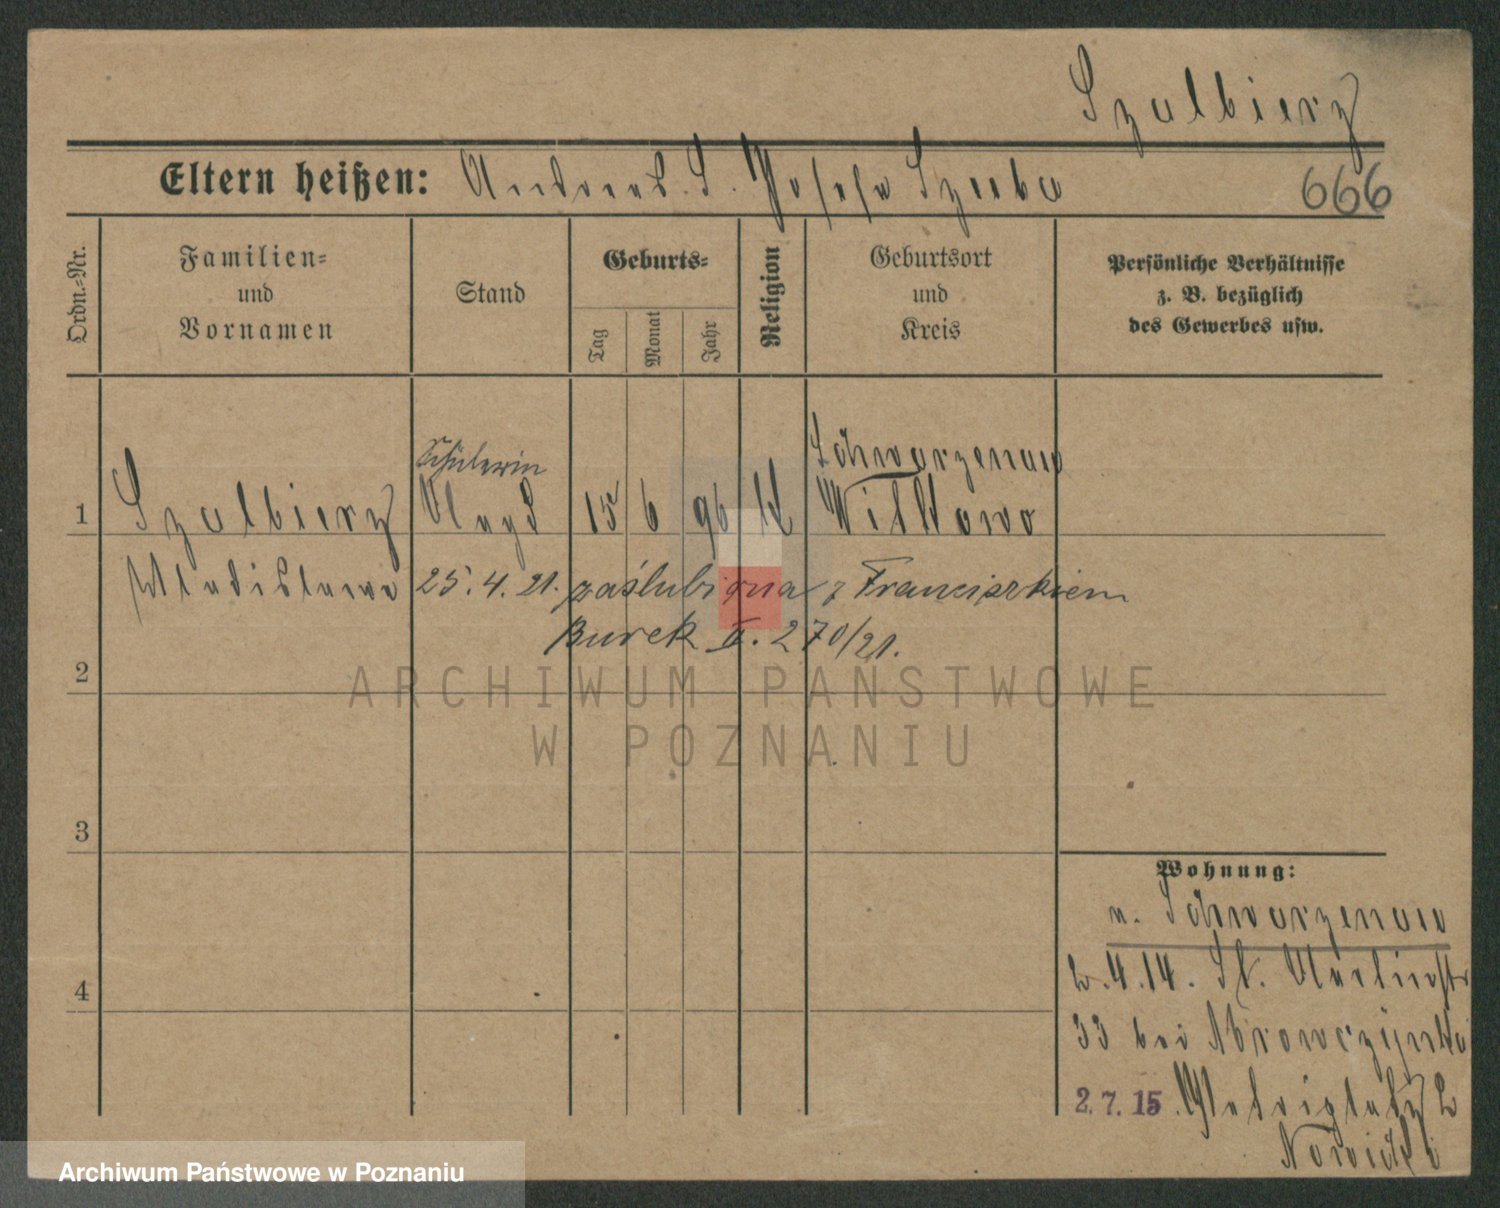 Szalbierz
Eltern heißen: Andreas S. Josefa Szuba
666
Ordn.-Nr.
Familien-
und
Vornamen
Stand
Geburts-
Tag
Monat
Jahr
Religion
Geburtsort
und
Kreis
Persönliche Verhältnisse
z. B. bezüglich
des Gewerbes usw.
Schülerin
Schwarzenau
1 Szalbierz Magd 15 6 96 k Witkowo
Wladislawa 25. 4. 21. zaślubiona z Franciszkiem
Burek II. 270/21.
2
ARCHIWUM PAŃSTWOWE
W POZNANIU
3
Wohnung:
v. Schwarzenau
2.4.14. St. Martinstr
33 bei
4
2.7.15
Nowicki
Archiwum Państwowe w Poznaniu